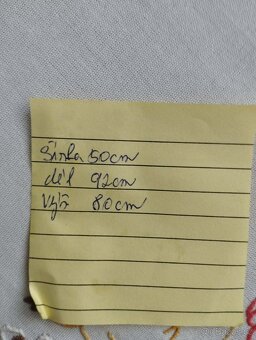 Šířka 50cm
dél 92cm
Výš 80cm